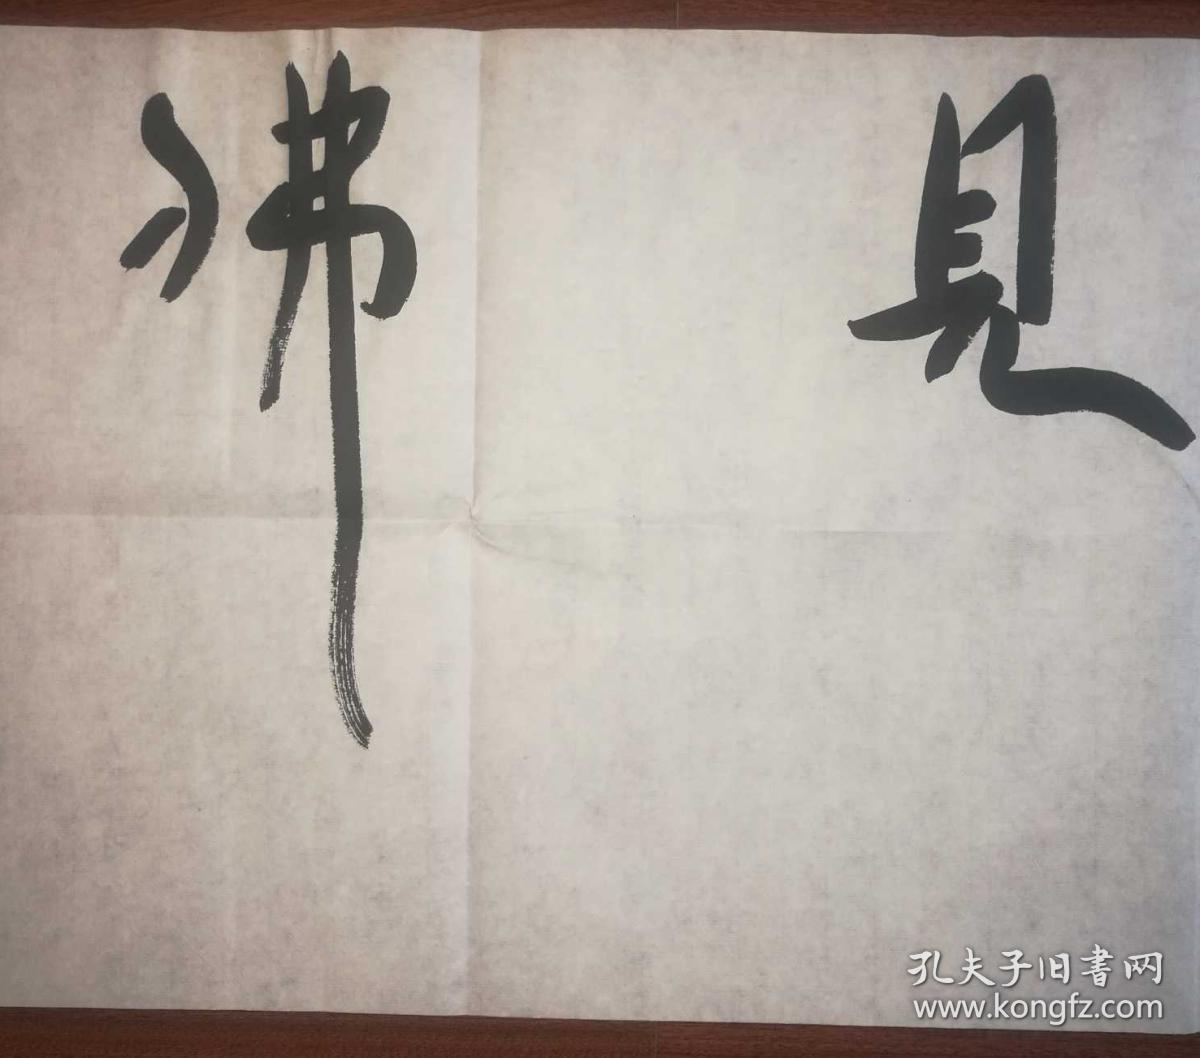 見佛
孔夫子旧書网
www.kongfz.com